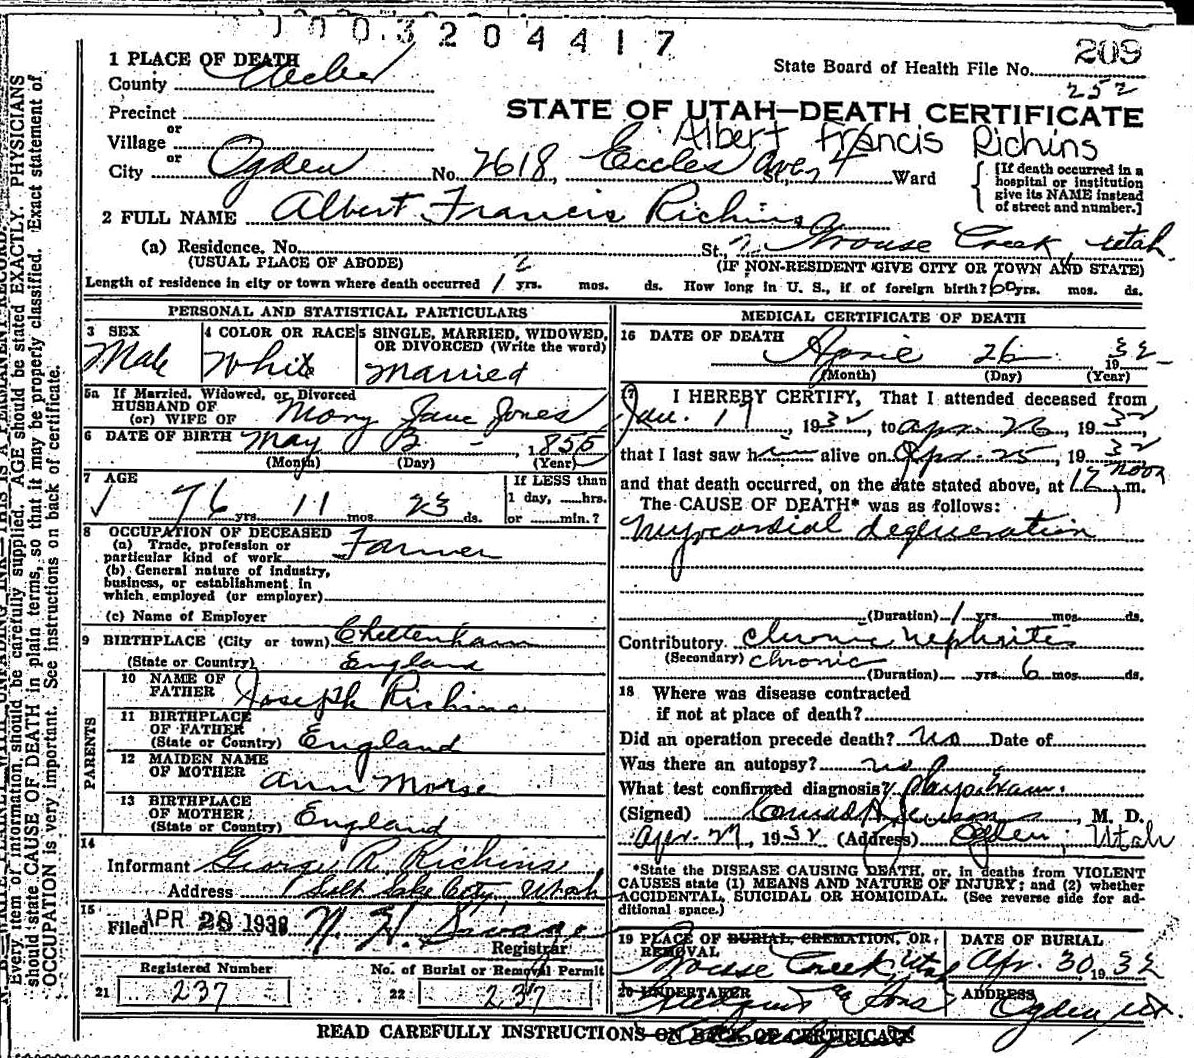 1003204417
209
State Board of Health File No.
252
STATE OF UTAH—DEATH CERTIFICATE
Albert Francis Richins
1 PLACE OF DEATH
County Weber
Precinct
or
Village
or
City Ogden No. 2618, Eccles Ave, St., Ward
{[If death occurred in a hospital or institution give its NAME instead of street and number.]
2 FULL NAME Albert Francis Richins
(a) Residence. No. St., Grouse Creek, Utah.
(USUAL PLACE OF ABODE) (IF NON-RESIDENT GIVE CITY OR TOWN AND STATE)
Length of residence in city or town where death occurred yrs. mos. ds. How long in U. S., if of foreign birth? 60 yrs. mos. ds.
PERSONAL AND STATISTICAL PARTICULARS
3 SEX
Male
4 COLOR OR RACE
White
5 SINGLE, MARRIED, WIDOWED, OR DIVORCED (Write the word)
Married
5a If Married, Widowed, or Divorced
HUSBAND OF
(or) WIFE OF Mary Jane Jones
6 DATE OF BIRTH May 3 - , 1855
(Month) (Day) (Year)
7 AGE
76 yrs. 11 mos. 23 ds.
If LESS than
1 day, hrs.
or min.?
8 OCCUPATION OF DECEASED
(a) Trade, profession or
particular kind of work Farmer
(b) General nature of industry,
business, or establishment in
which employed (or employer)
(c) Name of Employer
9 BIRTHPLACE (City or town) Cheltenham
(State or Country) England
PARENTS
10 NAME OF
FATHER Joseph Richins
11 BIRTHPLACE
OF FATHER
(State or Country) England
12 MAIDEN NAME
OF MOTHER Ann Morse
13 BIRTHPLACE
OF MOTHER
(State or Country) England
14
Informant George R. Richins
Address Salt Lake City, Utah
15
Filed APR 28 1932
Registrar
Registered Number
21 237
No. of Burial or Removal Permit
22 237
MEDICAL CERTIFICATE OF DEATH
16 DATE OF DEATH
April 26 1932
(Month) (Day) (Year)
17 I HEREBY CERTIFY, That I attended deceased from
Jan. 17, 1932, to Apr. 26, 1932
that I last saw h alive on Apr. 25, 1932
and that death occurred, on the date stated above, at 12 noon m.
The CAUSE OF DEATH* was as follows:
Myocardial degeneration
(Duration) 1 yrs. mos. ds.
Contributory Chronic Nephritis
(Secondary) chronic
(Duration) yrs. 6 mos. ds.
18 Where was disease contracted
if not at place of death?
Did an operation precede death? no Date of
Was there an autopsy? no
What test confirmed diagnosis? Phys. Exam.
(Signed) Conrad H. Jenson, M. D.
Apr. 27, 1932 (Address) Ogden, Utah
*State the DISEASE CAUSING DEATH, or, in deaths from VIOLENT
CAUSES state (1) MEANS AND NATURE OF INJURY; and (2) whether
ACCIDENTAL, SUICIDAL OR HOMICIDAL. (See reverse side for ad-
ditional space.)
19 PLACE OF BURIAL, CREMATION, OR
REMOVAL
Grouse Creek, Utah
DATE OF BURIAL
Apr. 30, 1932
20 UNDERTAKER
& Sons
ADDRESS
Ogden, Ut.
READ CAREFULLY INSTRUCTIONS ON BACK OF CERTIFICATE
Every item of information should be carefully supplied. AGE should be stated EXACTLY. PHYSICIANS
should state CAUSE OF DEATH in plain terms, so that it may be properly classified. Exact statement of
OCCUPATION is very important. See instructions on back of certificate.